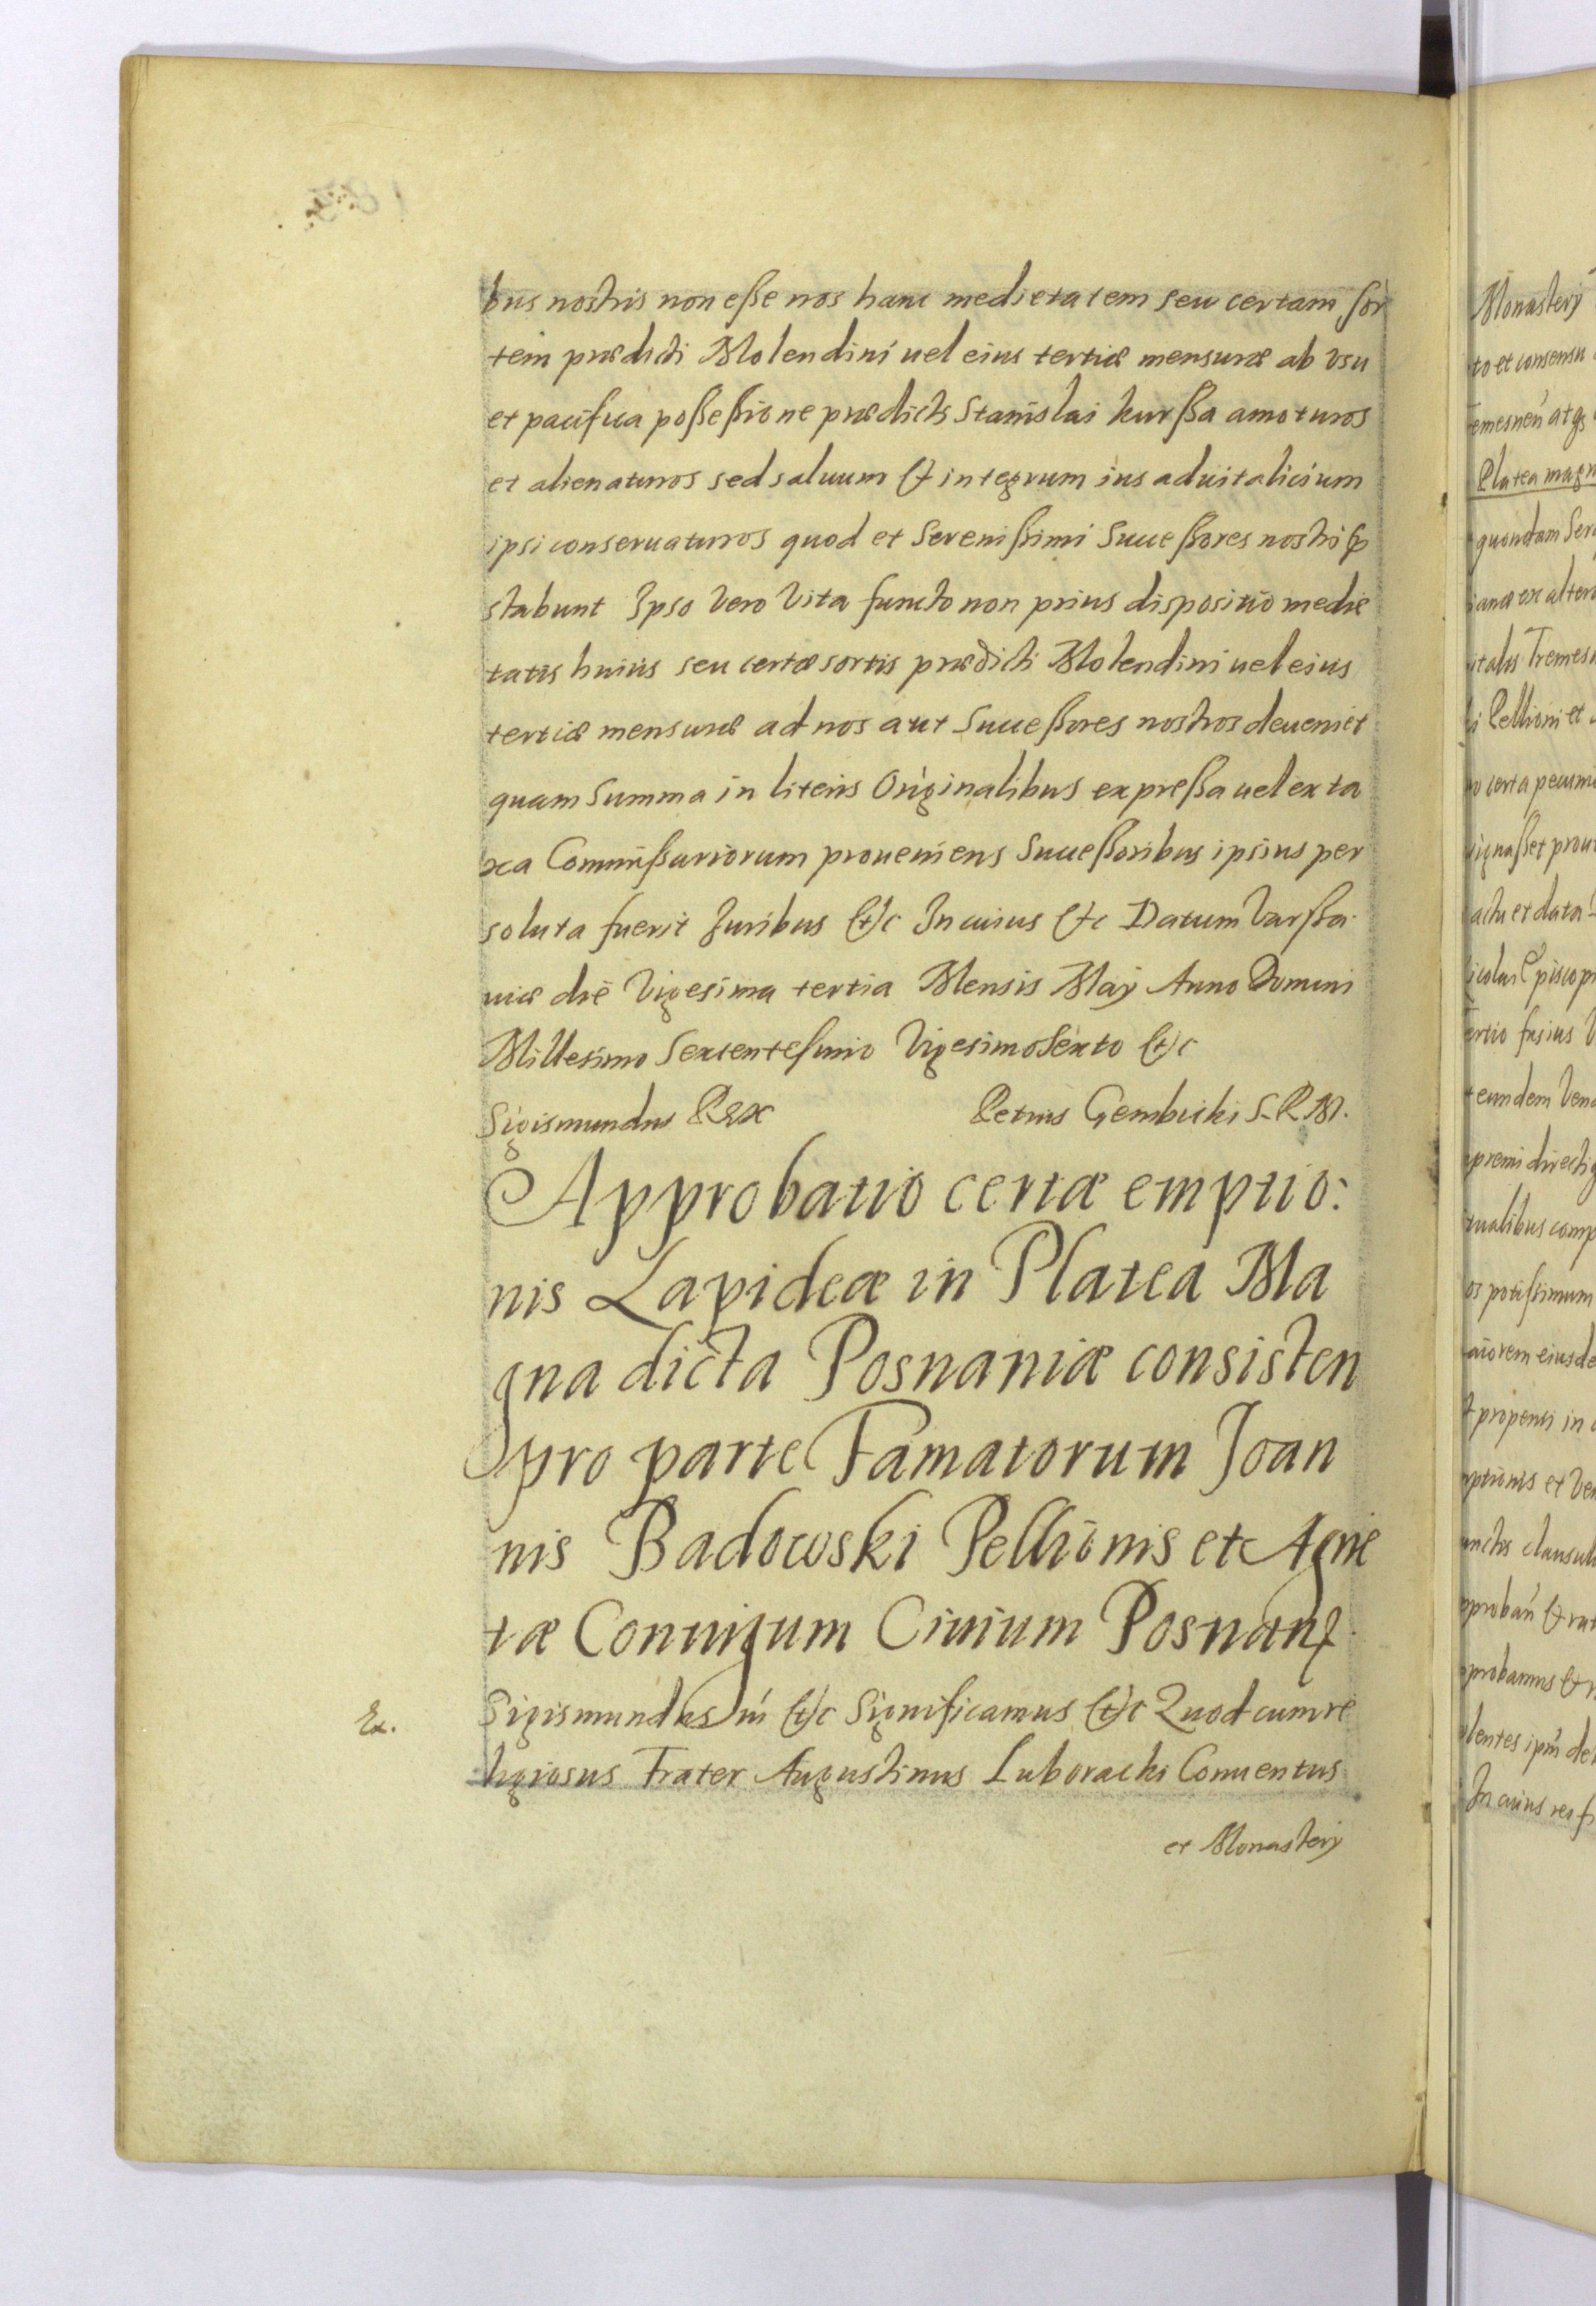 bus nostris non eße nos hanc medietatem seu certam sor
tem prædicti Molendini uel eius tertiæ mensuræ ab vsu
et pacifica poßeßione prædicti Stanislai kurßa amoturos
et alienaturos sed saluum & integrum ius aduitalicium
ipsi conseruaturos quod et Sereniſſimi Succeßores nostri
stabunt Ipso Vero Vita functo non prius dispositio medie
tatis huius seu certæ sortis prædicti Molendini uel eius
tertiæ mensuræ ad nos aut Succeßores nostros deueniet
quam Summa in literis Originalibus expreßa uel ex ta
xa Commißariorum proueniens Succeßoribus ipsius per
soluta fuerit Juribus &c In cuius &c Datum Varßa
uiæ die Vigesima tertia Mensis Maij Anno Domini
Millesimo Sexcentesimo Vigesimo Sexto &c
Sigismundus Rex Petrus Gembicki S. R. M.
Approbatio certæ emptio:
nis Lapideæ in Platea Ma
gna dicta Posnaniæ consisten
pro parte Famatorum Joan
nis Badowski Pellionis et Agne
tæ Conuigum Ciuium Posnan
Ex. Sigismundus &c Significamus &c Quod cum re
ligiosus Frater Augustinus Conuentus
et Monasterij
Monasterij
to et consensu
atqs
Platea magn
quondam
ex altero
i Pellioni et
certa pecuni
actu et data
Episcop
fusius
eundem
potißimum
et
clausul
probamus &
In cuius rei